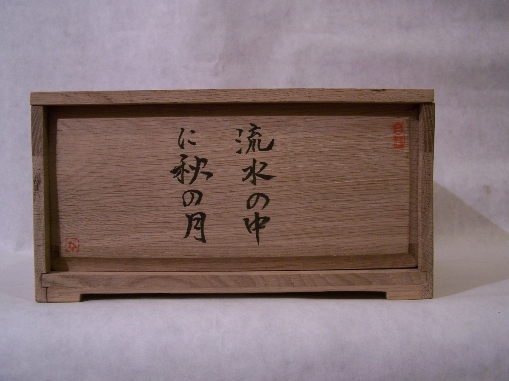 流水の中
に秋の月